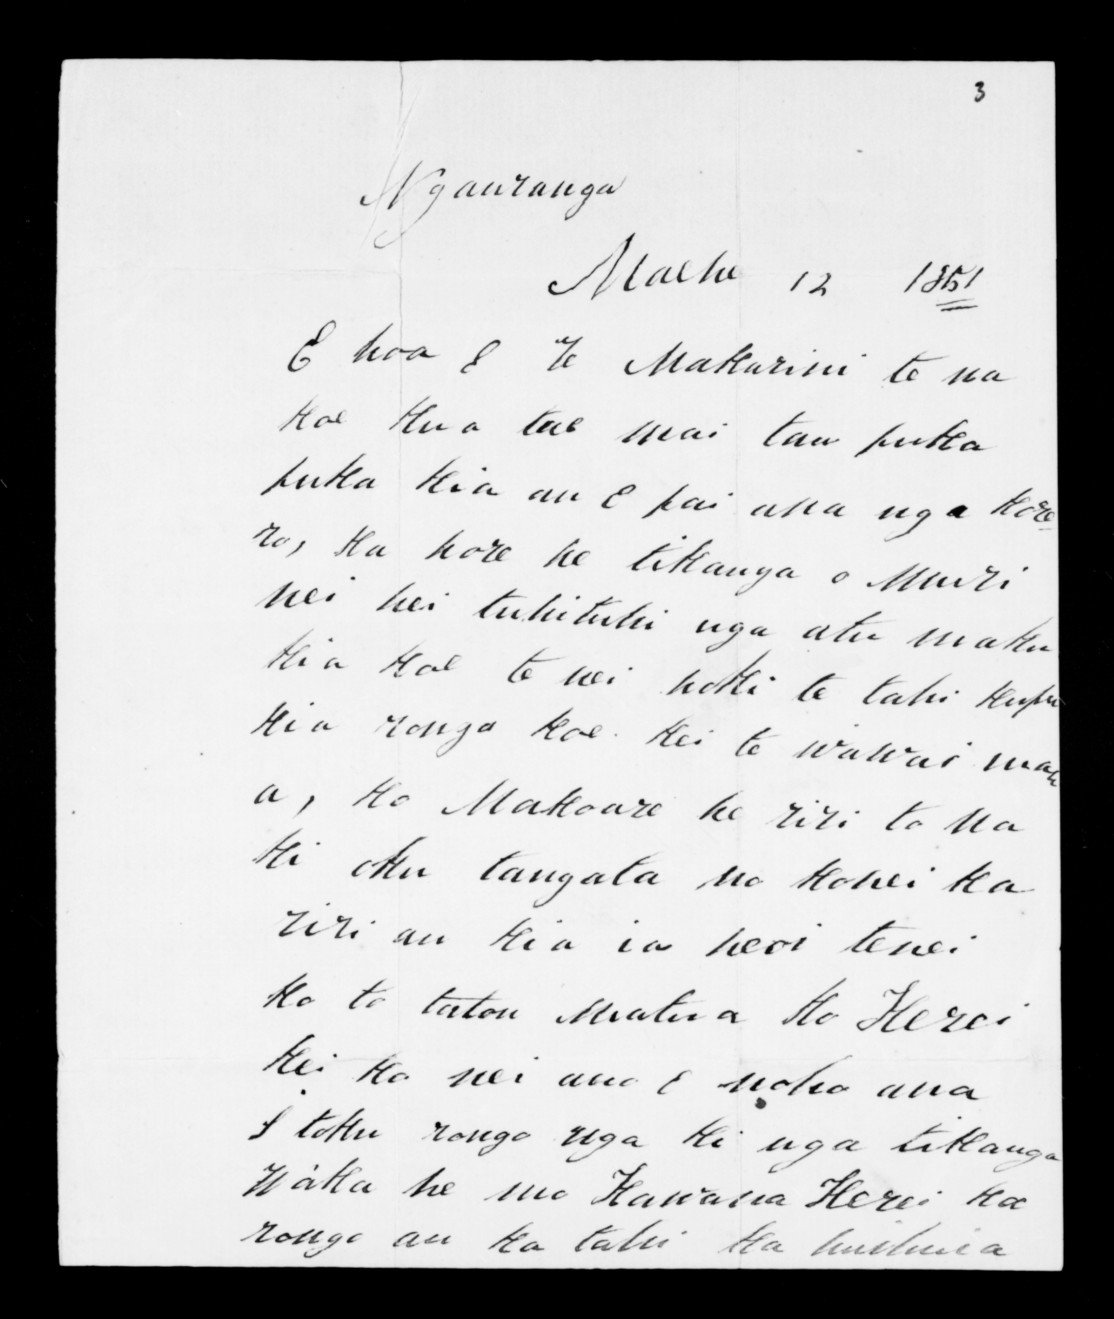 3
Ngauranga
Maehe 12 1851
E hoa E Te Makarini te na
koe kua tae mai tau puka
puka kia au E pai ana nga kore-
ro, ka hore he tikanga o Muri
nei hei tuhituhi nga atu maku
kia koe te nei hoki te tahi kupu
kia rongo koe. kei te wawai mak
a, ko Makoare he riri to na
ki oku tangata no konei ka
riri au kia ia heoi tenei
ko to tatou matua ko Herei
kei ko nei ano E noho ana
I toku rongo nga ki nga tikanga
waka he mo Kawana Herei ka
rongo au ka tahi ka huihuia